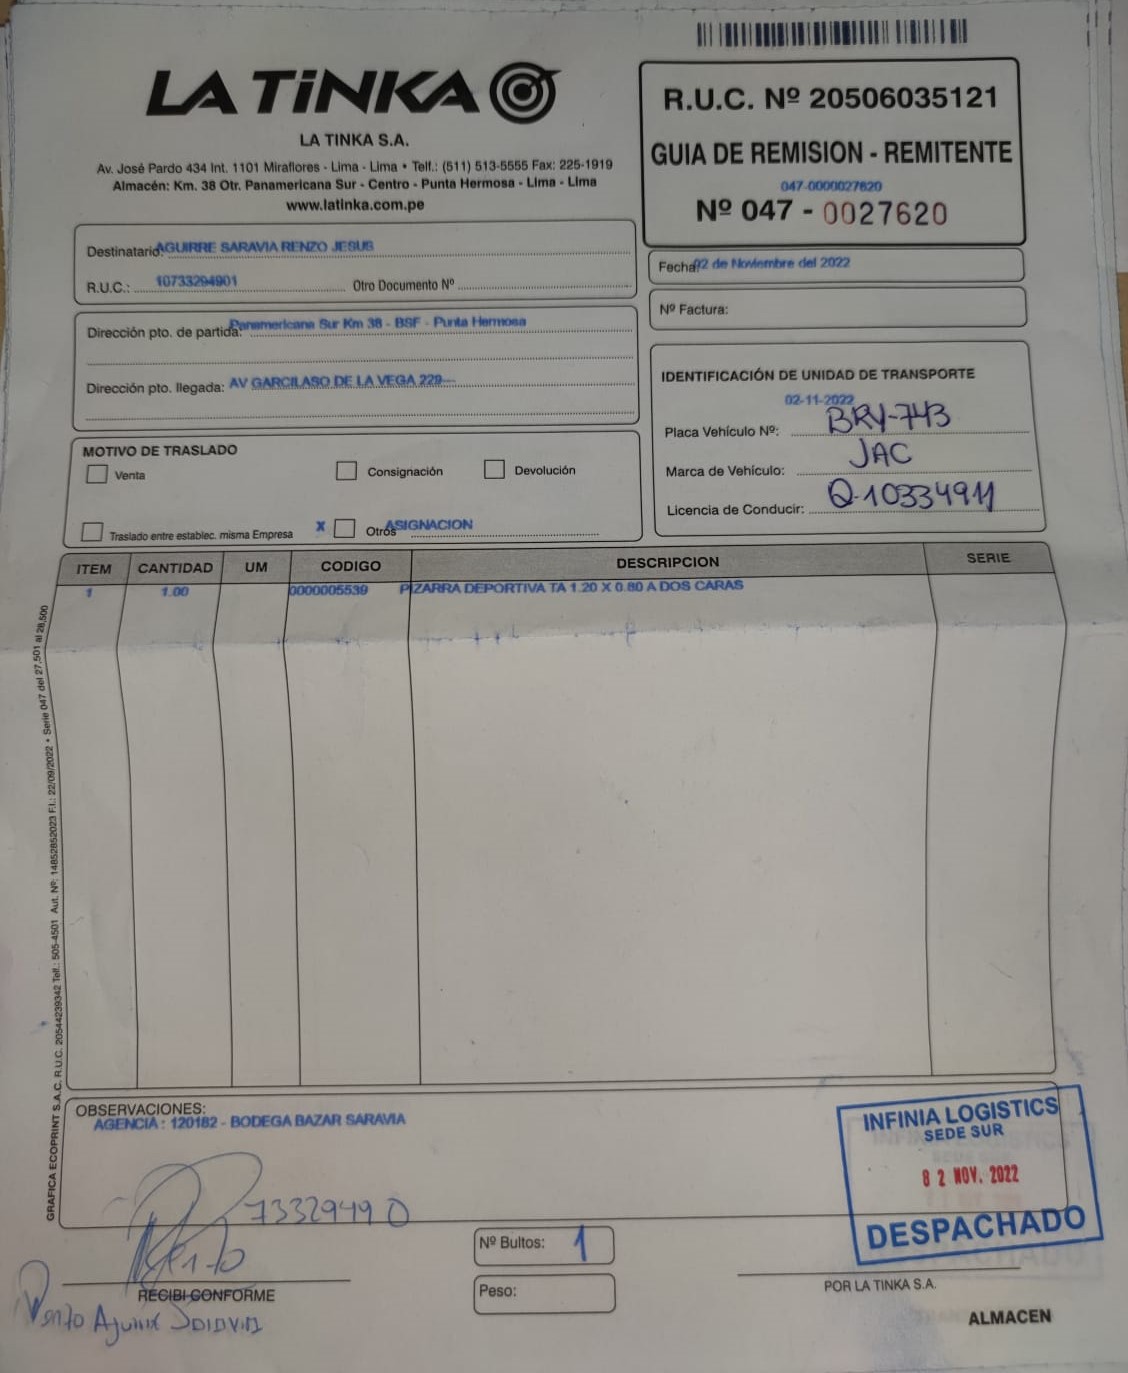 LA TiNKA
LA TINKA S.A.
Av. José Pardo 434 Int. 1101 Miraflores - Lima - Lima • Telf.: (511) 513-5555 Fax: 225-1919
Almacén: Km. 38 Otr. Panamericana Sur - Centro - Punta Hermosa - Lima - Lima
www.latinka.com.pe
R.U.C. Nº 20506035121
GUIA DE REMISION - REMITENTE
047-0000027620
Nº 047 - 0027620
Destinatario: AGUIRRE SARAVIA RENZO JESUS
R.U.C.: 10733294901 Otro Documento Nº
Fecha: 02 de Noviembre del 2022
Nº Factura:
Dirección pto. de partida: Panamericana Sur Km 38 - BSF - Punta Hermosa
Dirección pto. llegada: AV GARCILASO DE LA VEGA 229---
IDENTIFICACIÓN DE UNIDAD DE TRANSPORTE
02-11-2022
Placa Vehículo Nº: BRY-743
Marca de Vehículo: JAC
Licencia de Conducir: Q-10334911
MOTIVO DE TRASLADO
Venta Consignación Devolución
Traslado entre establec. misma Empresa X Otros ASIGNACION
ITEM CANTIDAD UM CODIGO DESCRIPCION SERIE
1 1.00 0000005539 PIZARRA DEPORTIVA TA 1.20 X 0.80 A DOS CARAS
GRAFICA ECOPRINT S.A.C. R.U.C. 20544239342 Telf.: 505-4501 Aut. Nº: 14852852023 F.I.: 22/09/2022 • Serie 047 del 27,501 al 28,500
OBSERVACIONES:
AGENCIA : 120182 - BODEGA BAZAR SARAVIA
INFINIA LOGISTICS
SEDE SUR
02 NOV. 2022
DESPACHADO
73329490
Renzo
RECIBI CONFORME
Renzo Aguirre Saravia
Nº Bultos: 1
Peso:
POR LA TINKA S.A.
ALMACEN